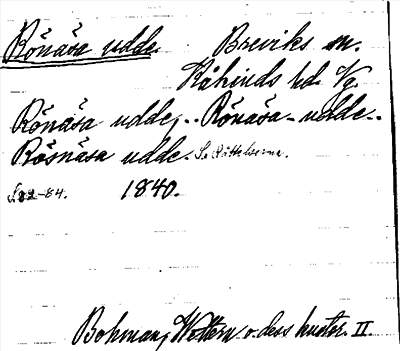 Rönäsa udde. Breviks sn.
Kåkinds hd. Vg.
Rönäsa udde, .. Rönäsa-udde..
Rösnäsa udde. Se Rättelserna.
S 82-84. 1840.
Bohman, Wettern o. dess kuster. II.